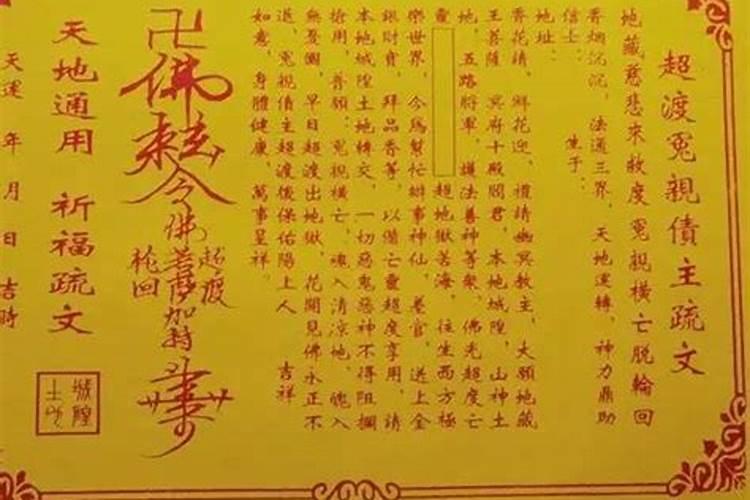 超渡冤親債主疏文
地藏慈悲來救度冤親橫亡脫輪回
香烟沉沉，法通三界，天地運轉，神力鼎助
信士： 生于：
地址：
香花請，鮮花迎，禮請幽冥教主，大願地藏
王菩薩，冥府十殿閻君，本地城隍，山神土
地，五路將軍，護法善神等眾，佛光超度亡
靈 超地獄苦海，往生西方極
樂世界，今爲幫忙辦事神仙，差官，送上金
銀財寶，拜品香等，以備亡靈超度享用，請
本地城隍土地轉交，一切惡鬼惡神不得阻攔
搶用，普願：冤親橫亡，魂入清涼地，魄入
無憂國，早日超渡出地獄，花開見佛永正不
退，冤親債主超渡後保佑陽上人 吉祥
如意，身體健康，萬事呈祥。
卍佛
令佛菩薩加持
超度
輪回
天地通用 祈福疏文
城隍
土地
天運 年 月 日 吉時